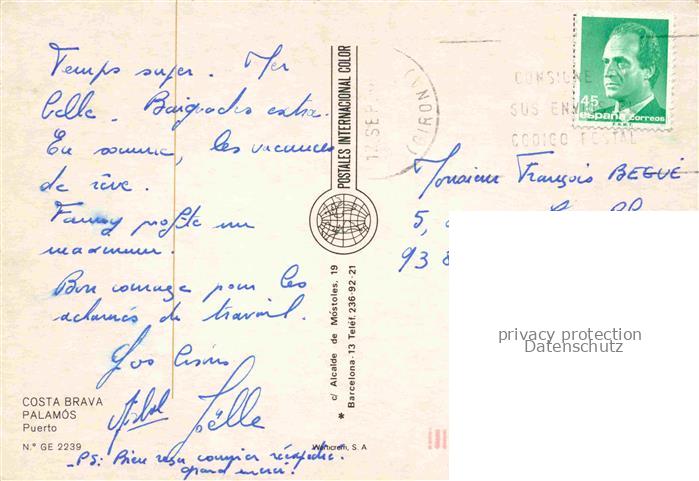 Temps super. Mer
belle. Baignades extra.
En somme, les vacances
de rêve.
Fanny profite un
maximum.
Bon courage pour les
acharnés du travail.
Vos
Joëlle
PS: Bien reçu courrier
grand merci!
COSTA BRAVA
PALAMÓS
Puerto
N.° GE 2239
POSTALES INTERNACIONAL COLOR
c/ Alcalde de Móstoles, 19
Barcelona-13 Teléf. 236-92-21
S. A
SEP
(GIRON
CONSIGNE EN
SUS ENVIOS
CODIGO POSTAL
45
españa correos
Monsieur François BEGUÉ
5,
93
privacy protection
Datenschutz